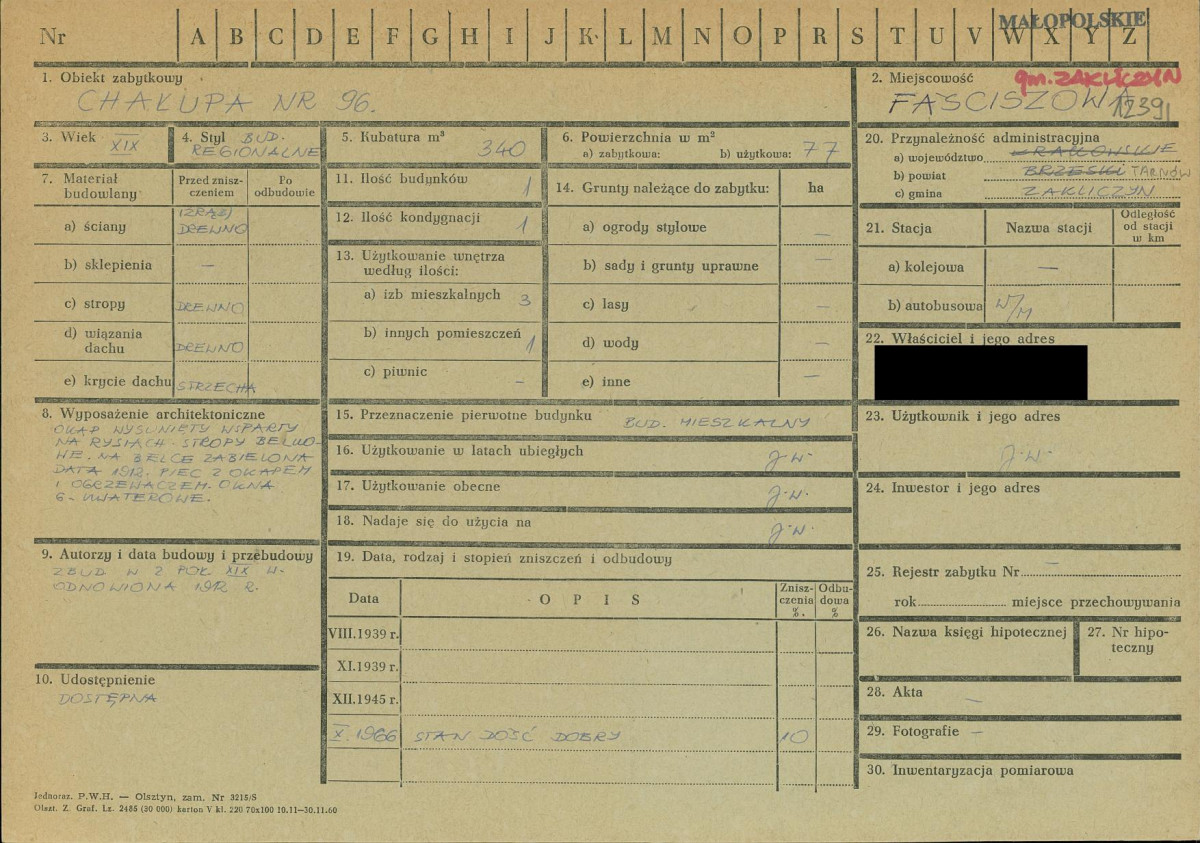 MAŁOPOLSKIE
Nr A B C D E F G H I J K L M N O P R S T U V W X Y Z
1. Obiekt zabytkowy
CHAŁUPA NR 96.
2. Miejscowość
gm. ZAKLICZYN
FAŚCISZOWA
1239
3. Wiek XIX
4. Styl BUD. REGIONALNE
5. Kubatura m³ 340
6. Powierzchnia w m²
a) zabytkowa: b) użytkowa: 77
7. Materiał budowlany
Przed zniszczeniem
Po odbudowie
a) ściany (ZRĄB) DREWNO
b) sklepienia —
c) stropy DREWNO
d) wiązania dachu DREWNO
e) krycie dachu STRZECHA
8. Wyposażenie architektoniczne
OKAP WYSUNIĘTY WSPARTY
NA RYSIACH - STROPY BELKO-
WE. NA BELCE ZABIELONA
DATA 1912. PIEC Z OKAPEM
I OGRZEWACZEM. OKNA
6-KWATEROWE.
9. Autorzy i data budowy i przebudowy
ZBUD W 2 POŁ XIX W.
ODNOWIONA 1912 R.
10. Udostępnienie
DOSTĘPNA
11. Ilość budynków 1
12. Ilość kondygnacji 1
13. Użytkowanie wnętrza
według ilości:
a) izb mieszkalnych 3
b) innych pomieszczeń 1
c) piwnic -
14. Grunty należące do zabytku: ha
a) ogrody stylowe —
b) sady i grunty uprawne —
c) lasy —
d) wody —
e) inne —
15. Przeznaczenie pierwotne budynku BUD. MIESZKALNY
16. Użytkowanie w latach ubiegłych j.w.
17. Użytkowanie obecne j.w.
18. Nadaje się do użycia na j.w.
19. Data, rodzaj i stopień zniszczeń i odbudowy
Data OPIS Zniszczenia %. Odbudowa %
VIII.1939 r.
XI.1939 r.
XII.1945 r.
X.1966 STAN DOŚĆ DOBRY 10
20. Przynależność administracyjna
a) województwo KRAKOWSKIE
b) powiat BRZESKI TARNÓW
c) gmina ZAKLICZYN
21. Stacja Nazwa stacji Odległość od stacji w km
a) kolejowa —
b) autobusowa W/M
22. Właściciel i jego adres
23. Użytkownik i jego adres
j.w.
24. Inwestor i jego adres
25. Rejestr zabytku Nr —
rok miejsce przechowywania
26. Nazwa księgi hipotecznej
27. Nr hipoteczny
28. Akta —
29. Fotografie —
30. Inwentaryzacja pomiarowa
Jednoraz. P.W.H. — Olsztyn, zam. Nr 3215/S
Olszt. Z. Graf. Lz. 2485 (30 000) karton V kl. 220 70x100 10.11—30.11.60